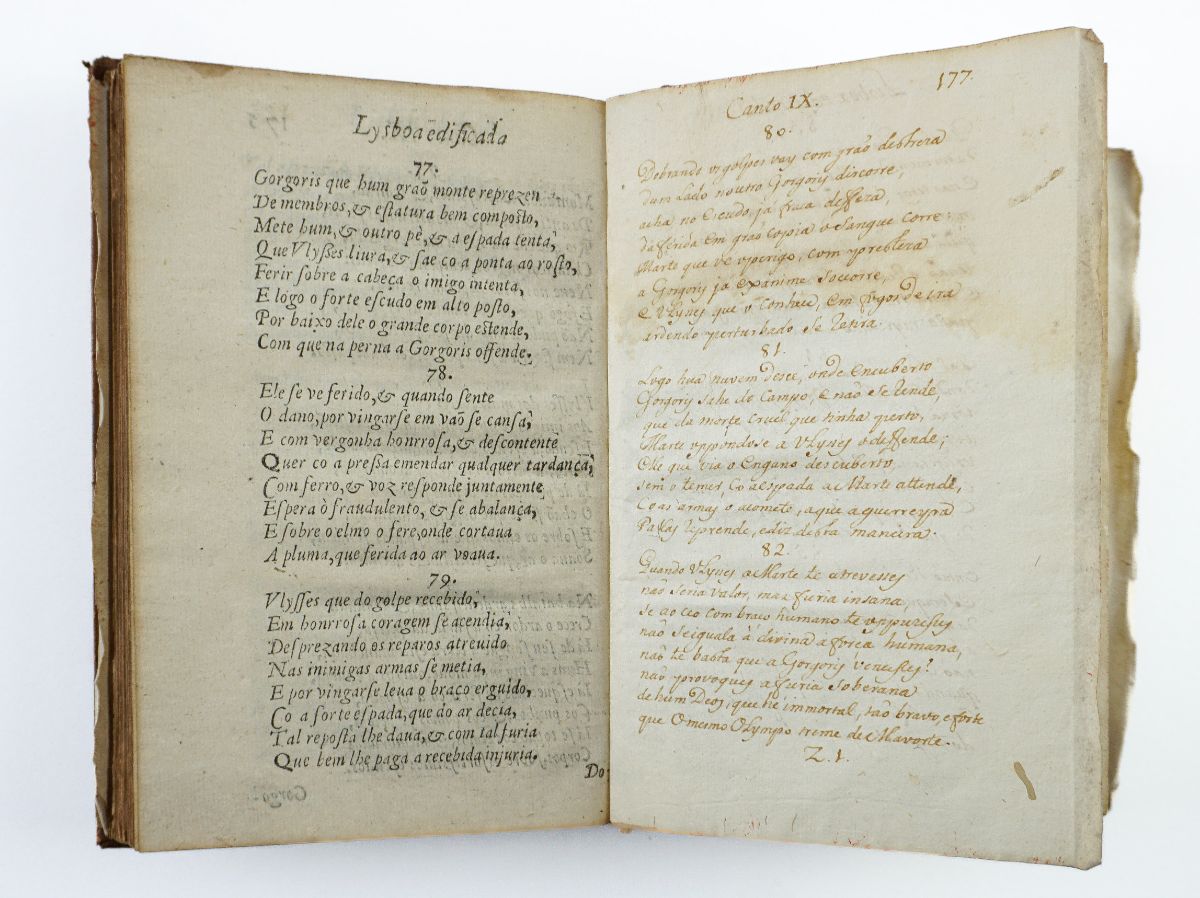 Lysboa edificada
77.
Gorgoris que hum graõ monte reprezen
De membros, & estatura bem composto,
Mete hum, & outro pè, & a espada tenta,
Que Vlysses liura, & sae co a ponta ao rosto,
Ferir sobre a cabeça o imigo intenta,
E lógo o forte escudo em alto posto,
Por baixo dele o grande corpo estende,
Com que na perna a Gorgoris offende.
78.
Ele se ve ferido, & quando sente
O dano, por vingarse em vaõ se cansa,
E com vergonha honrrosa, & descontente
Quer co a pressa emendar qualquer tardança,
Com ferro, & voz responde juntamente
Espera ò fraudulento, & se abalança,
E sobre o elmo o fere, onde cortaua
A pluma, que ferida ao ar voaua.
79.
Vlysses que do golpe recebido,
Em honrrosa coragem se acendia,
Desprezando os reparos atreuido
Nas inimigas armas se metia,
E por vingarse leua o braço erguido,
Co a forte espada, que do ar decia,
Tal reposta lhe daua, & com tal furia
Que bem lhe paga a recebida injuria.
Do
Canto IX. 177.
80.
Dobrando os golpes vay com graõ destreza
dum lado noutro Gorgorÿ discorre,
acha no escudo já fraca deffeza,
da ferida em graõ copia o sangue corre:
Marte que ve o perigo, com presteza
a Gorgorÿ já exânime soccorre,
e Ulÿses que o conhece, em fogos de ira
ardendo perturbado se retira.
81.
Logo hua nuvem desce, onde encuberto
Gorgorÿ sahe do campo, e naõ se rende,
que da morte cruel que tinha perto,
Marte oppondose a Ulÿses o deffende;
Elle que via o engano descuberto,
sem o temer, co a espada a Marte attende,
Co as armas o acomete, a que a guerreyra
Palas reprende, e diz desta maneira.
82.
Quando Ulÿses a Marte te atrevesses
naõ seria valor, mas furia insana,
se ao ceo com braço humano te oppuzesses
naõ se iguala à divina a força humana,
naõ te basta que a Gorgorÿ vencesses?
naõ provoques a furia soberana
de hum Deos, que he immortal, taõ bravo, e forte
que o mesmo Olympo treme de Mavorte.
Z. 1.